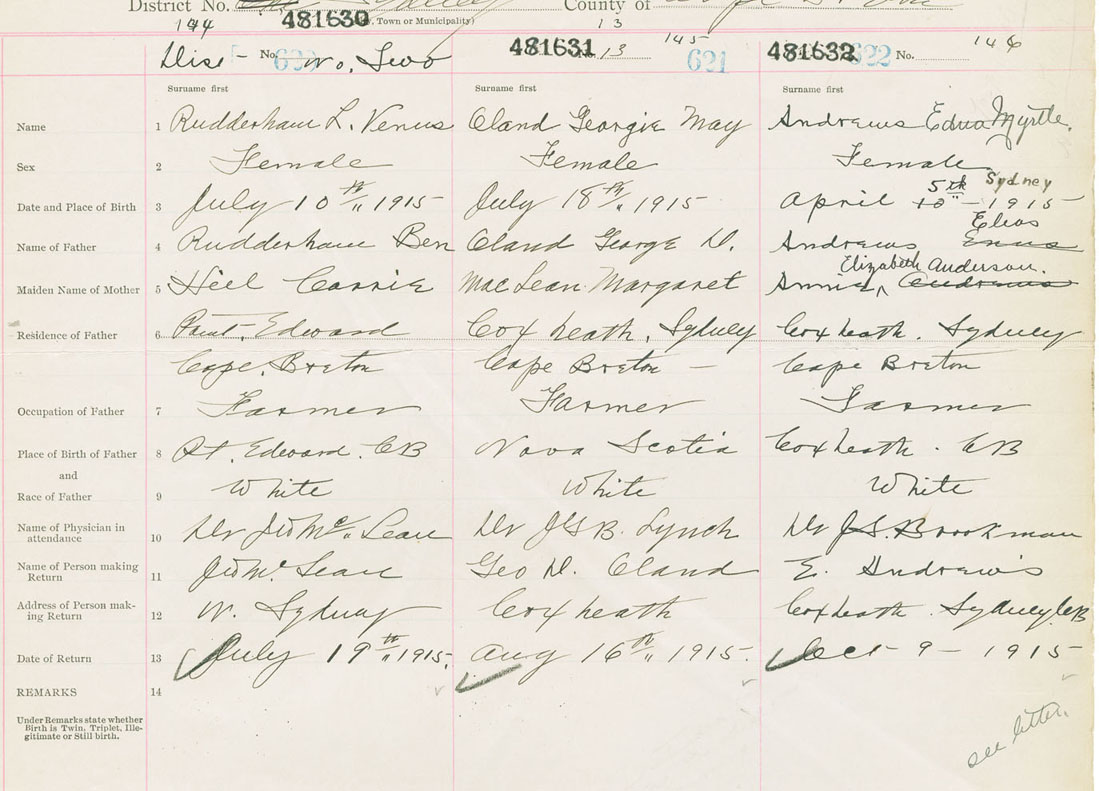 District No. Sydney County of Cape Breton
144 481630 (. Town or Municipality) 13
Dist - No. 620 No. Two 481631 No. 13 145 621 481632 622 No. 146
Surname first Surname first Surname first
Name 1 Rudderham L. Venus Oland Georgie May Andrews Edna Myrtle.
Sex 2 Female Female Female
5th Sydney
Date and Place of Birth 3 July 10th, 1915 July 18th, 1915 April 10" - 1915
Elias
Name of Father 4 Rudderham Ben Oland George D. Andrews
Elizabeth Anderson.
Maiden Name of Mother 5 Carrie MacLean Margaret Annie Andrews
Residence of Father 6 Point Edward Coxheath, Sydney Coxheath, Sydney
Cape Breton Cape Breton - Cape Breton
Occupation of Father 7 Farmer Farmer Farmer
Place of Birth of Father 8 Pt. Edward. CB Nova Scotia Coxheath. CB
and
Race of Father 9 White White White
Name of Physician in
attendance 10 Dr McLean Dr J.G.B. Lynch Dr J.S. Brookman
Name of Person making
Return 11 McLean Geo D. Oland E. Andrews
Address of Person mak-
ing Return 12 N. Sydney Coxheath Coxheath. Sydney CB
Date of Return 13 July 19th, 1915. Aug 16th, 1915. Oct 9 - 1915
REMARKS 14
Under Remarks state whether
Birth is Twin, Triplet, Ille-
gitimate or Still birth.
see letter.